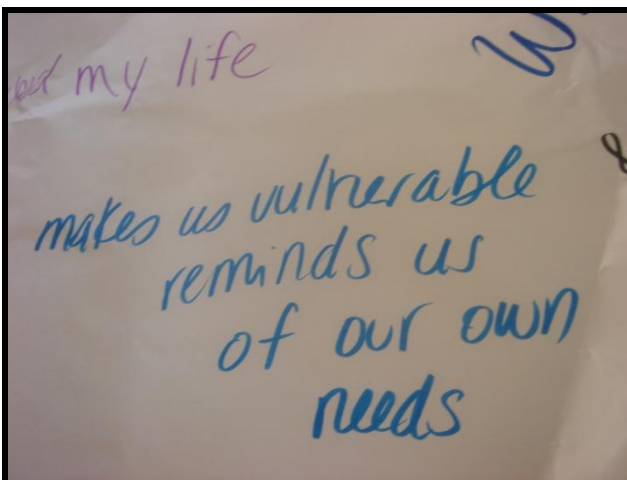 my life
makes us vulnerable
reminds us
of our own
needs